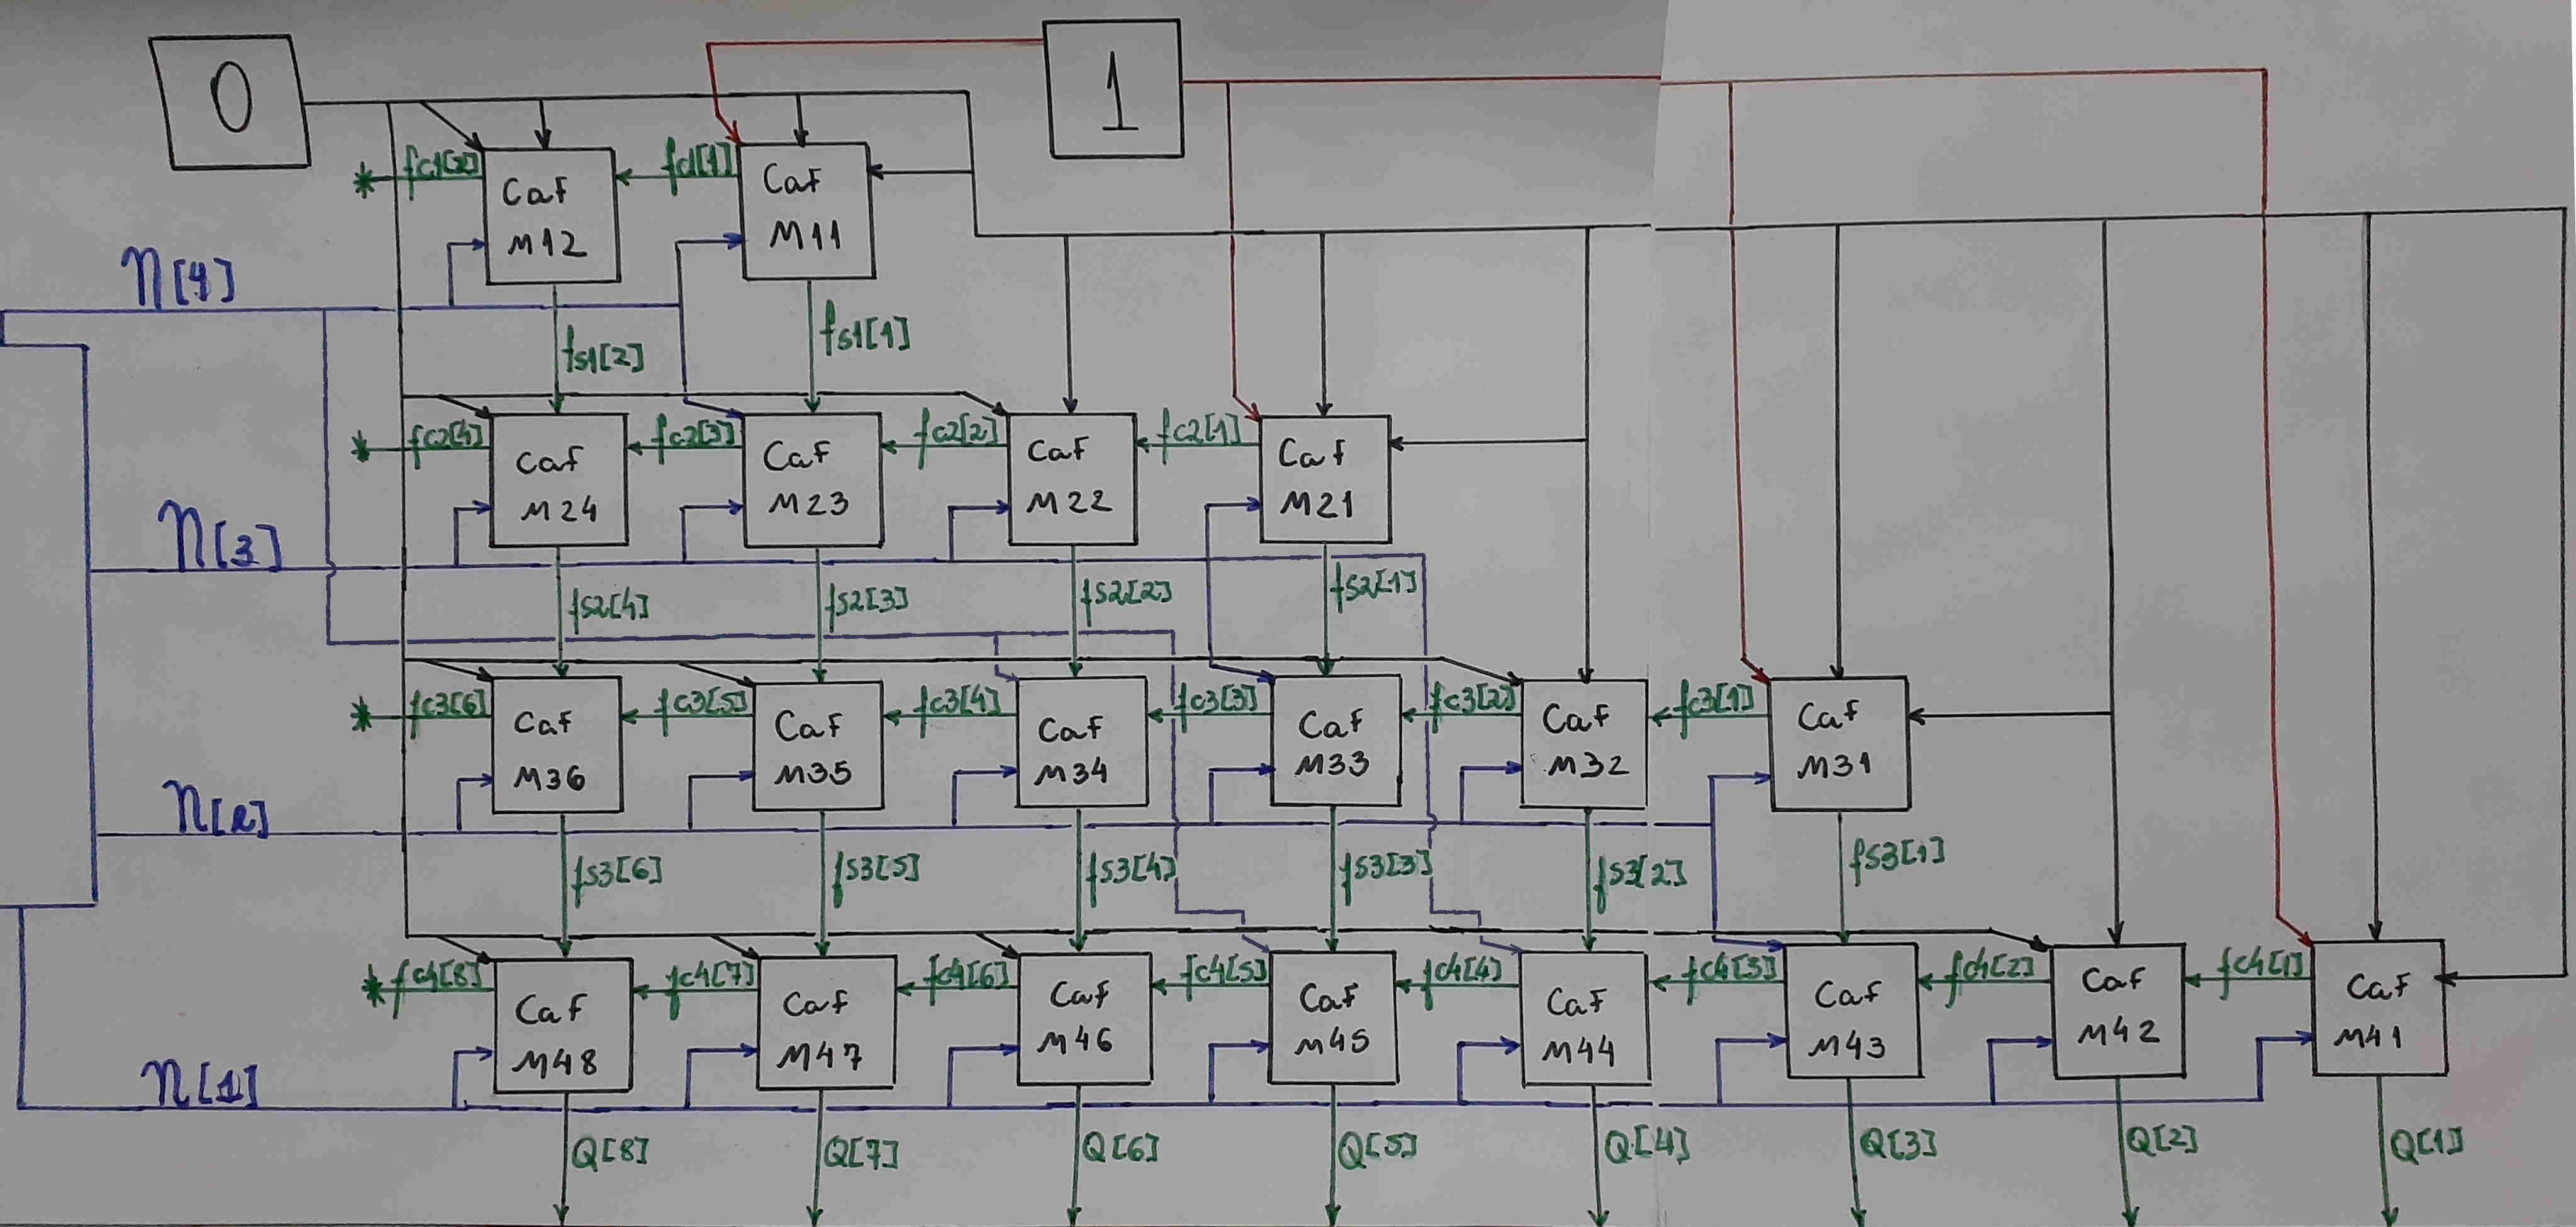 0
1
fc1[2]
Caf
M12
fc1[1]
Caf
M11
n[4]
fs1[2]
fs1[1]
fc2[4]
Caf
M24
fc2[3]
Caf
M23
fc2[2]
Caf
M22
fc2[1]
Caf
M21
n[3]
fs2[4]
fs2[3]
fs2[2]
fs2[1]
fc3[6]
Caf
M36
fc3[5]
Caf
M35
fc3[4]
Caf
M34
fc3[3]
Caf
M33
fc3[2]
Caf
M32
fc3[1]
Caf
M31
n[2]
fs3[6]
fs3[5]
fs3[4]
fs3[3]
fs3[2]
fs3[1]
fc4[8]
Caf
M48
fc4[7]
Caf
M47
fc4[6]
Caf
M46
fc4[5]
Caf
M45
fc4[4]
Caf
M44
fc4[3]
Caf
M43
fc4[2]
Caf
M42
fc4[1]
Caf
M41
n[1]
Q[8]
Q[7]
Q[6]
Q[5]
Q[4]
Q[3]
Q[2]
Q[1]